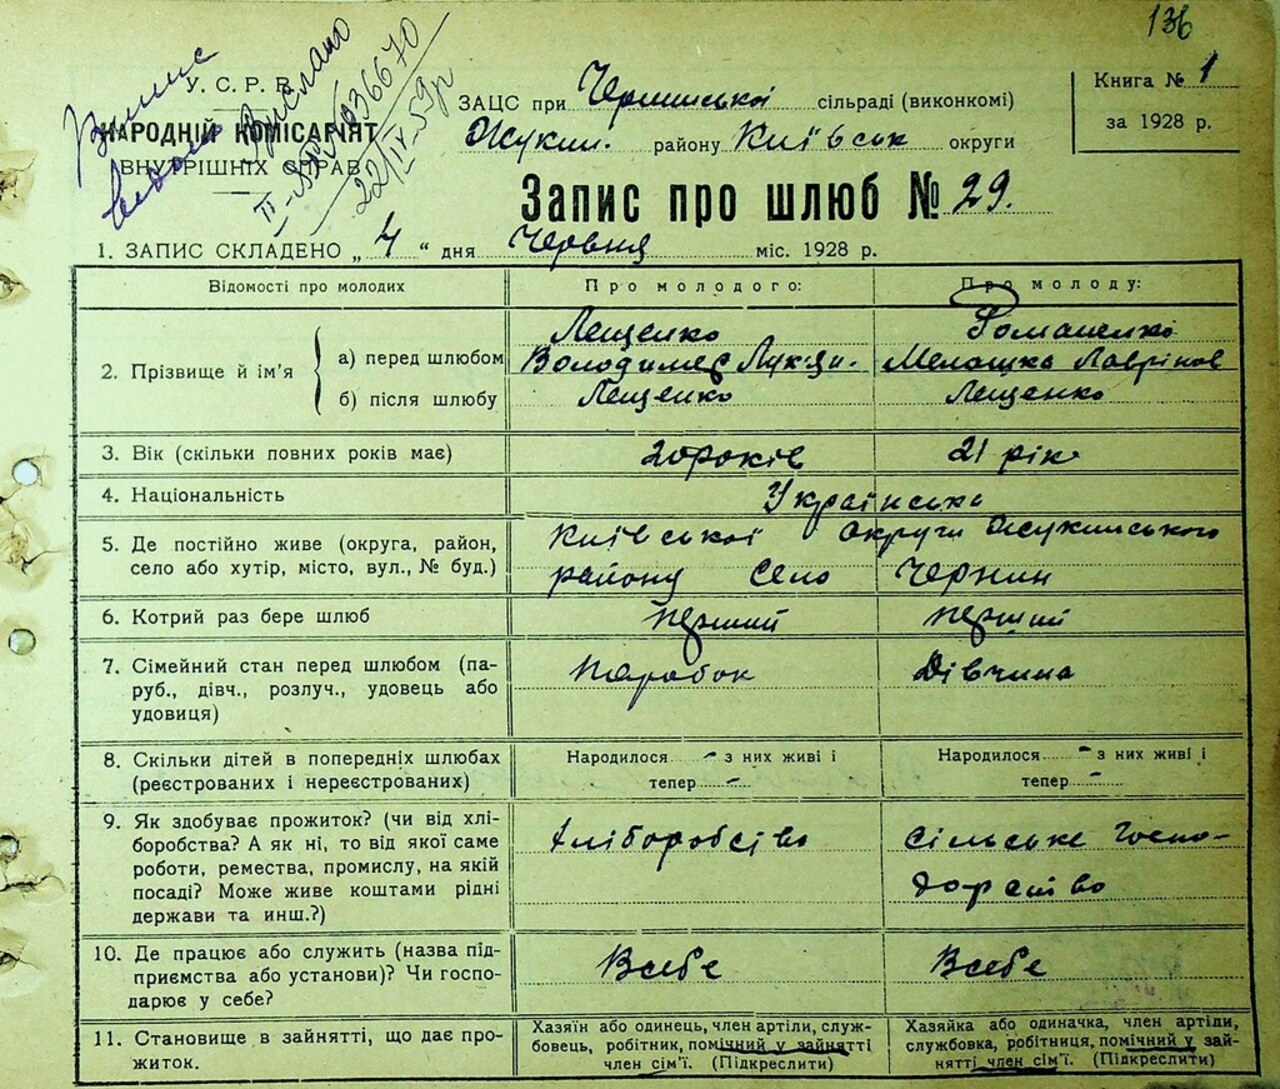 136
У. С. Р. Р.
НАРОДНІЙ КОМІСАРІЯТ
ВНУТРІШНІХ СПРАВ
Вислано
036670
22/IV-59р
ЗАЦС при Чернинської сільраді (виконкомі)
Жукин. району Київськ округи
Книга № 1
за 1928 р.
Запис про шлюб № 29.
1. ЗАПИС СКЛАДЕНО „ 4 “ дня Червня міс. 1928 р.
Відомості про молодих Про молодого: Про молоду:
2. Прізвище й ім'я
а) перед шлюбом Лещенко Володимер Лук-ди. Романенко Мелашка Лаврінов
б) після шлюбу Лещенко Лещенко
3. Вік (скільки повних років має) 20 років 21 рік
4. Національність Українська
5. Де постійно живе (округа, район, Київської Округи Жукинського
село або хутір, місто, вул., № буд.) району Село Чернин
6. Котрий раз бере шлюб перший перший
7. Сімейний стан перед шлюбом (па- Парабок Дівчина
руб., дівч., розлуч., удовець або
удовиця)
8. Скільки дітей в попередніх шлюбах Народилося - з них живі і Народилося - з них живі і
(реєстрованих і нереєстрованих) тепер - тепер -
9. Як здобуває прожиток? (чи від хлі- Хліборобство Сільське Госпо-
боробства? А як ні, то від якої саме дарство
роботи, ремества, промислу, на якій
посаді? Може живе коштами рідні
держави та инш.?)
10. Де працює або служить (назва під- Всебе Всебе
приємства або установи)? Чи госпо-
дарює у себе?
11. Становище в зайнятті, що дає про- Хазяїн або одинець, член артіли, служ- Хазяйка або одиначка, член артіли,
житок. бовець, робітник, помічний у зайнятті службовка, робітниця, помічний у зай-
член сім'ї. (Підкреслити) нятті член сім'ї. (Підкреслити)